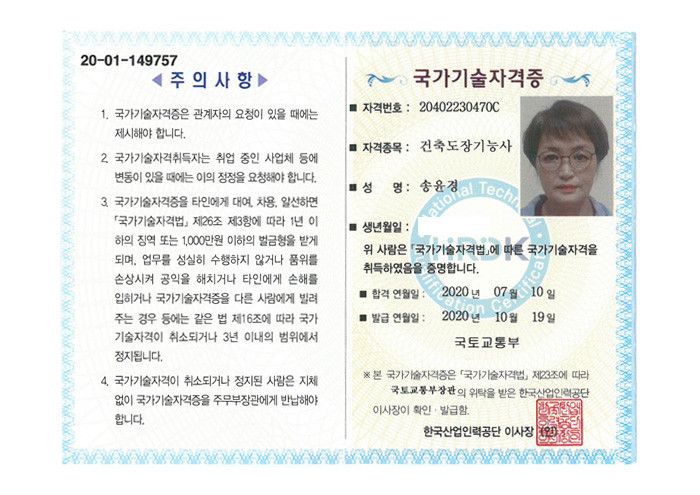 20-01-149757
◀ 주 의 사 항 ▶
1. 국가기술자격증은 관계자의 요청이 있을 때에는
제시해야 합니다.
2. 국가기술자격취득자는 취업 중인 사업체 등에
변동이 있을 때에는 이의 정정을 요청해야 합니다.
3. 국가기술자격증을 타인에게 대여, 차용, 알선하면
「국가기술자격법」 제26조 제3항에 따라 1년 이
하의 징역 또는 1,000만원 이하의 벌금형을 받게
되며, 업무를 성실히 수행하지 않거나 품위를
손상시켜 공익을 해치거나 타인에게 손해를
입히거나 국가기술자격증을 다른 사람에게 빌려
주는 경우 등에는 같은 법 제16조에 따라 국가
기술자격이 취소되거나 3년 이내의 범위에서
정지됩니다.
4. 국가기술자격이 취소되거나 정지된 사람은 지체
없이 국가기술자격증을 주무부장관에게 반납해야
합니다.
국가기술자격증
■ 자격번호 : 20402230470C
■ 자격종목 : 건축도장기능사
■ 성 명 : 송윤경
■ 생년월일 :
위 사람은 「국가기술자격법」에 따른 국가기술자격을
취득하였음을 증명합니다.
■ 합격 연월일 : 2020 년 07 월 10 일
■ 발급 연월일 : 2020 년 10 월 19 일
국토교통부
※ 본 국가기술자격증은 「국가기술자격법」 제23조에 따라
국토교통부장관의 위탁을 받은 한국산업인력공단
이사장이 확인 · 발급함.
한국산업인력공단 이사장 (인)
HRDK